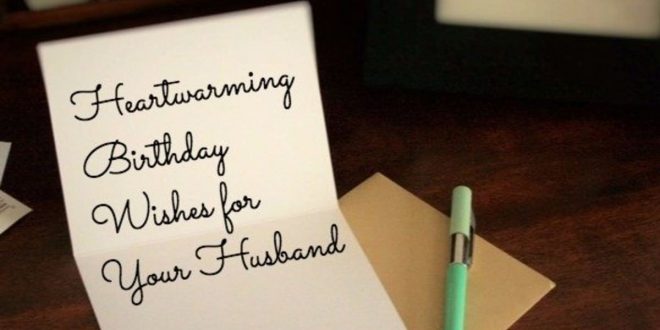 Heartwarming
Birthday
Wishes for
Your Husband